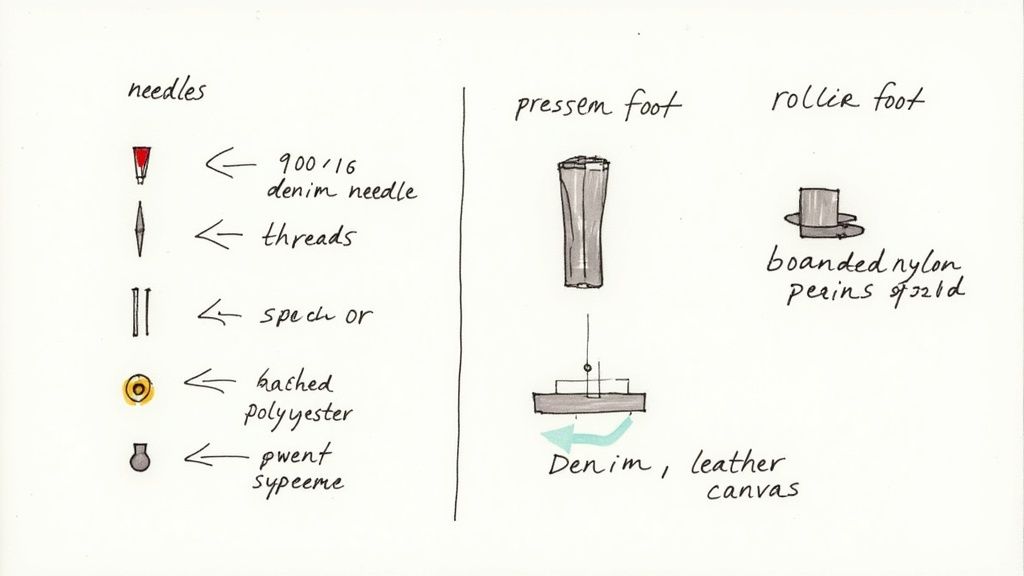 needles
900/16
denim needle
threads
spech or
bached
polyyester
pwent
sypeeme
pressem foot
Denim, leather
canvas
rollir foot
boanded nylon
peains